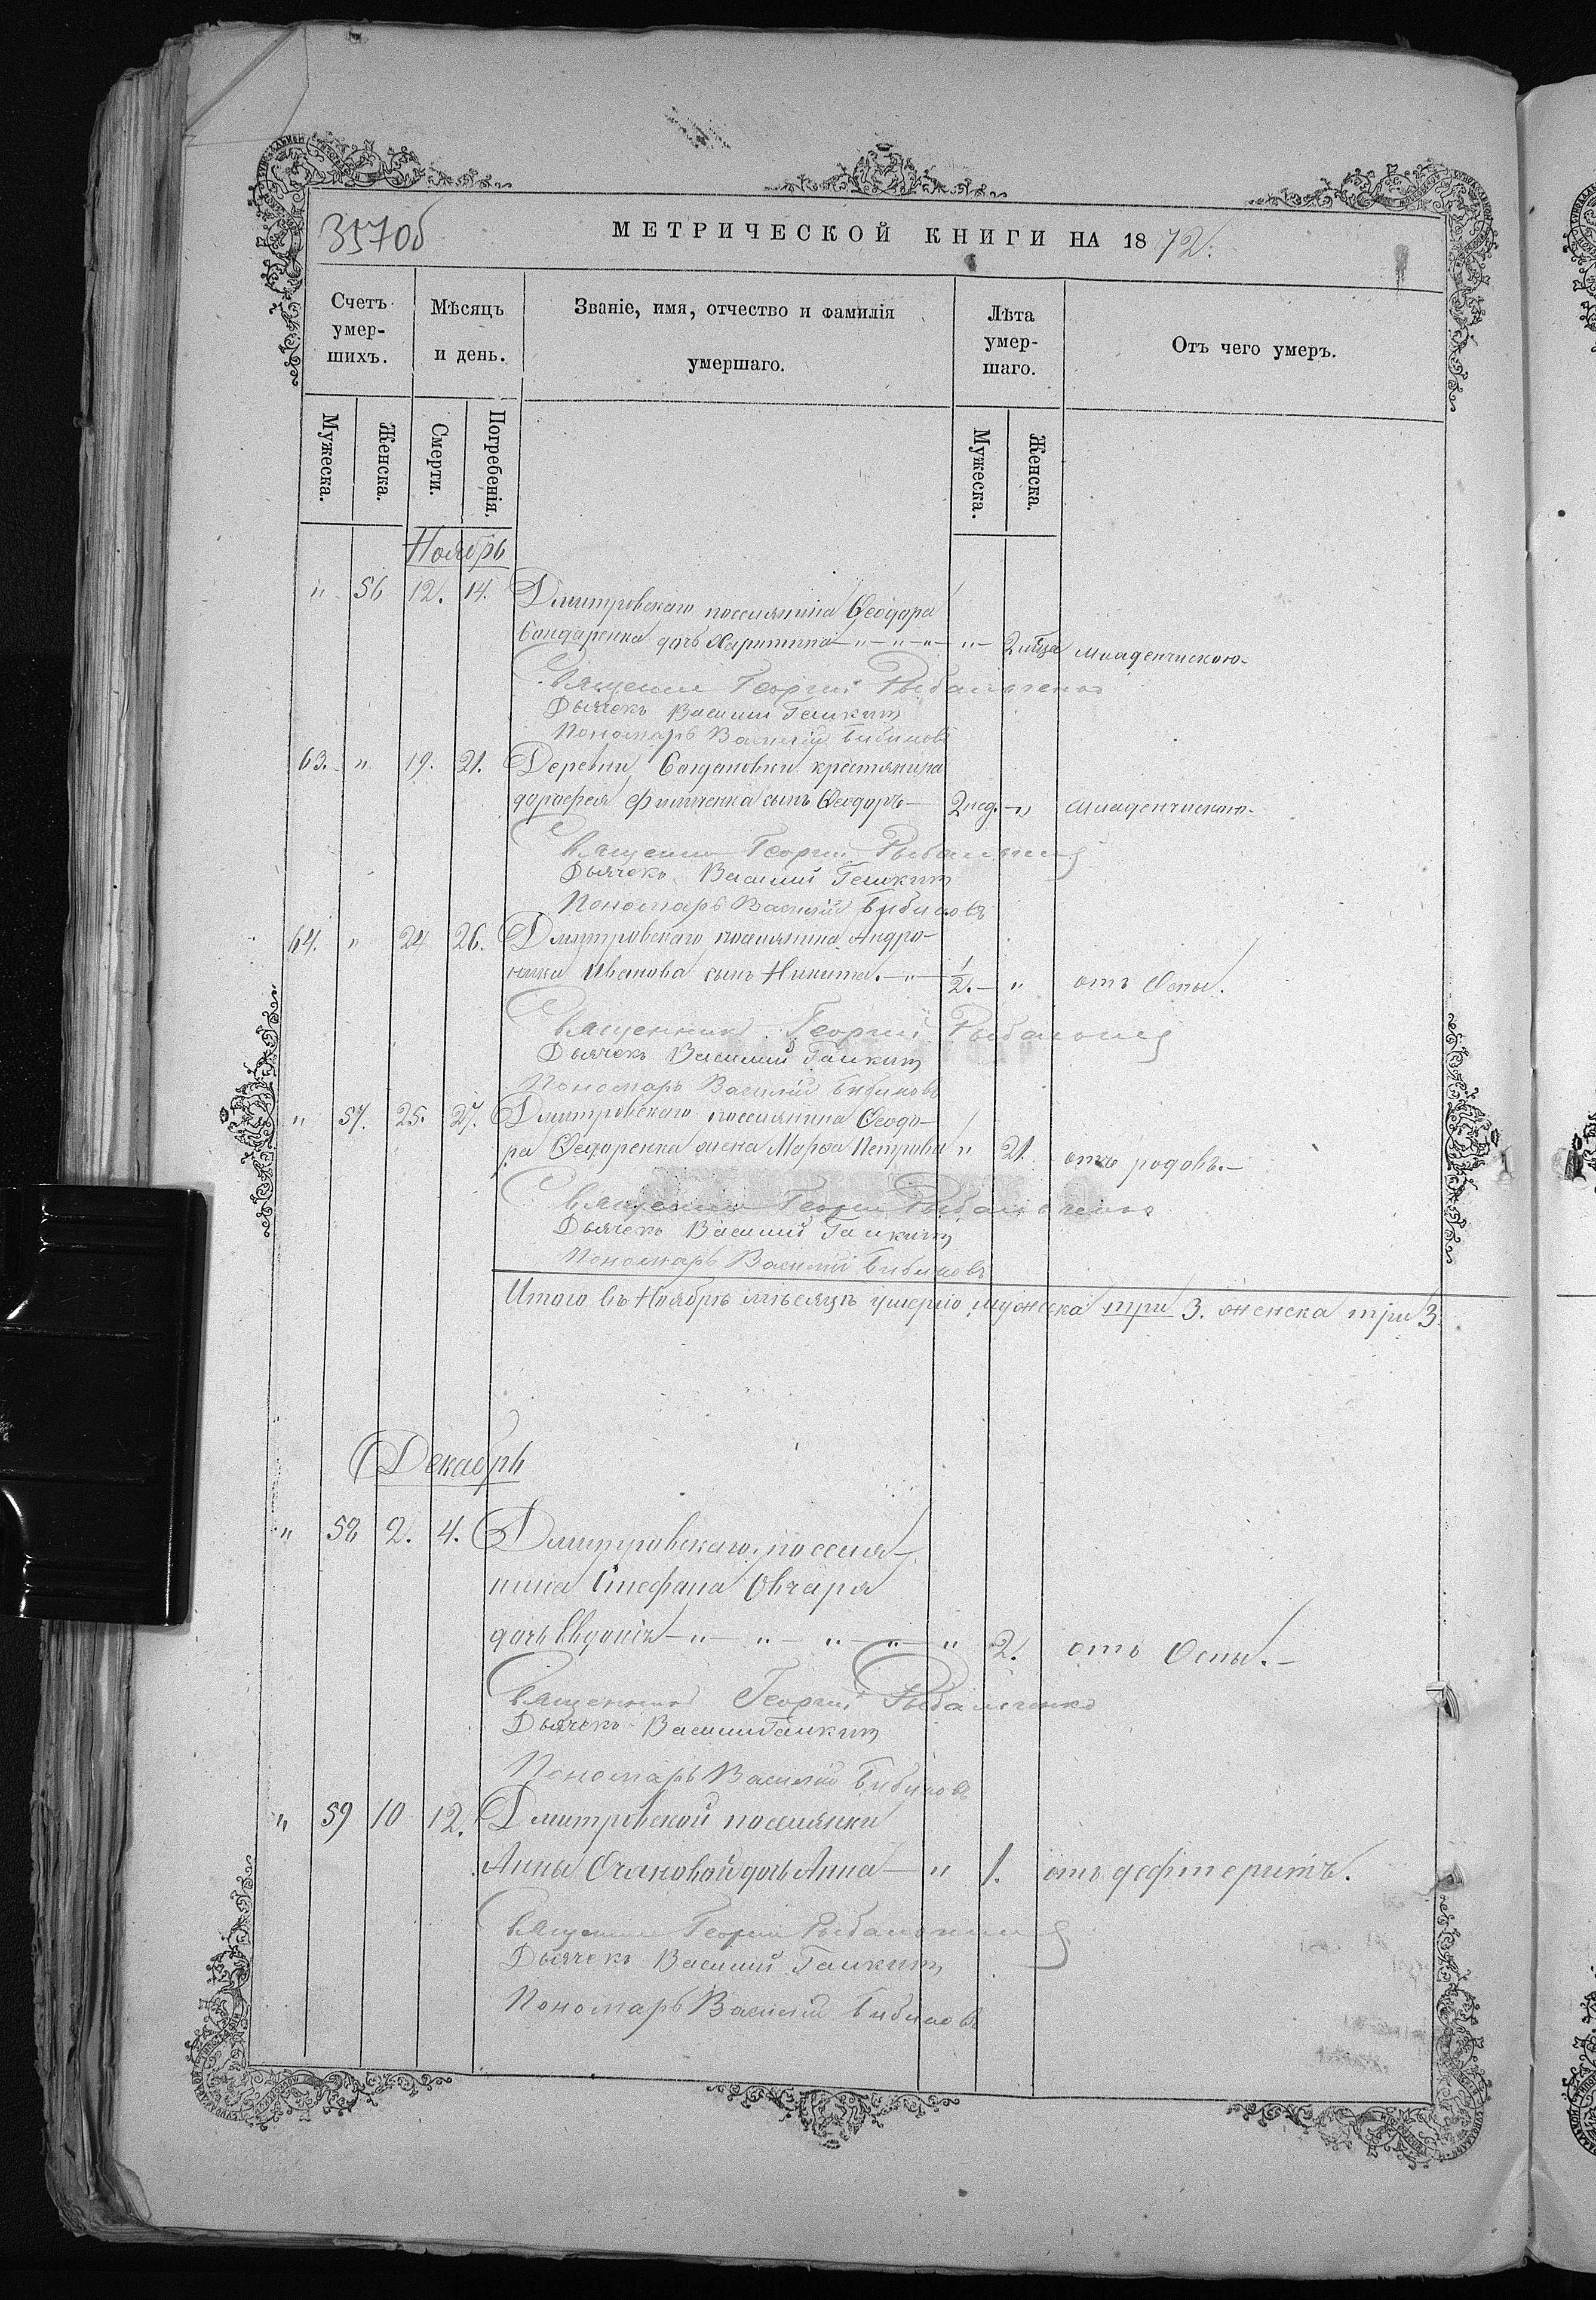 357об
МЕТРИЧЕСКОЙ КНИГИ НА 1872.
Счетъ умер-шихъ.
Мѣсяцъ и день.
Званіе, имя, отчество и фамилія умершаго.
Лѣта умер-шаго.
Отъ чего умеръ.
Мужеска.
Женска.
Смерти.
Погребенія.
Мужеска.
Женска.
Ноябрь
" 56 12. 14. Дмитровскаго поселянина Ѳеодора
Бондаренка дочь Харитина - " - " - " - " - 2 мѣца младенческою.
Священникъ Георгій Рыбальченко
Дьячекъ Василий Галкинъ
Пономарь Василій Бибиковъ
63. " 19. 21. Деревни Богдановки крестянина
дорофея сынъ Ѳеодоръ - 2 нед. - " младенческою.
Священникъ Георгій Рыбальченко
Дьячекъ Василий Галкинъ
Пономарь Василій Бибиковъ
64. " 24 26. Дмитровскаго поселянина Андро-
ника Иванова сынъ Никита. - " - 1/2. - " отъ Оспы.
Священникъ Георгій Рыбальченко
Дьячекъ Василий Галкинъ
Пономарь Василій Бибиковъ
" 57. 25. 27. Дмитровскаго поселянина Ѳеодо-
ра Ѳедоренка жена Марѳа Петрова " 21. отъ родовъ. -
Священникъ Георгій Рыбальченко
Дьячекъ Василий Галкинъ
Пономарь Василій Бибиковъ
Итого въ Ноябрѣ мѣсяцѣ умерло мужеска три 3. женска три 3
Декабрь
" 58 2. 4. Дмитровскаго поселя-
нина Стефана Овчаря
дочь Евдокія - " - " - " - " - " 2. отъ Оспы. -
Священникъ Георгій Рыбальченко
Дьячекъ Василий Галкинъ
Пономарь Василій Бибиковъ
" 59 10 12. Дмитровской поселянки
Анны дочь Анна - " 1. отъ дефтеритъ.
Священникъ Георгій Рыбальченко
Дьячекъ Василий Галкинъ
Пономарь Василій Бибиковъ